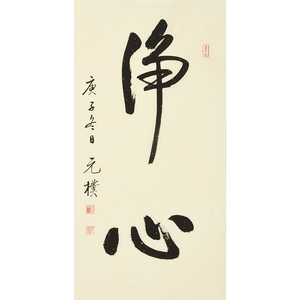 净心
庚子冬日 元樸